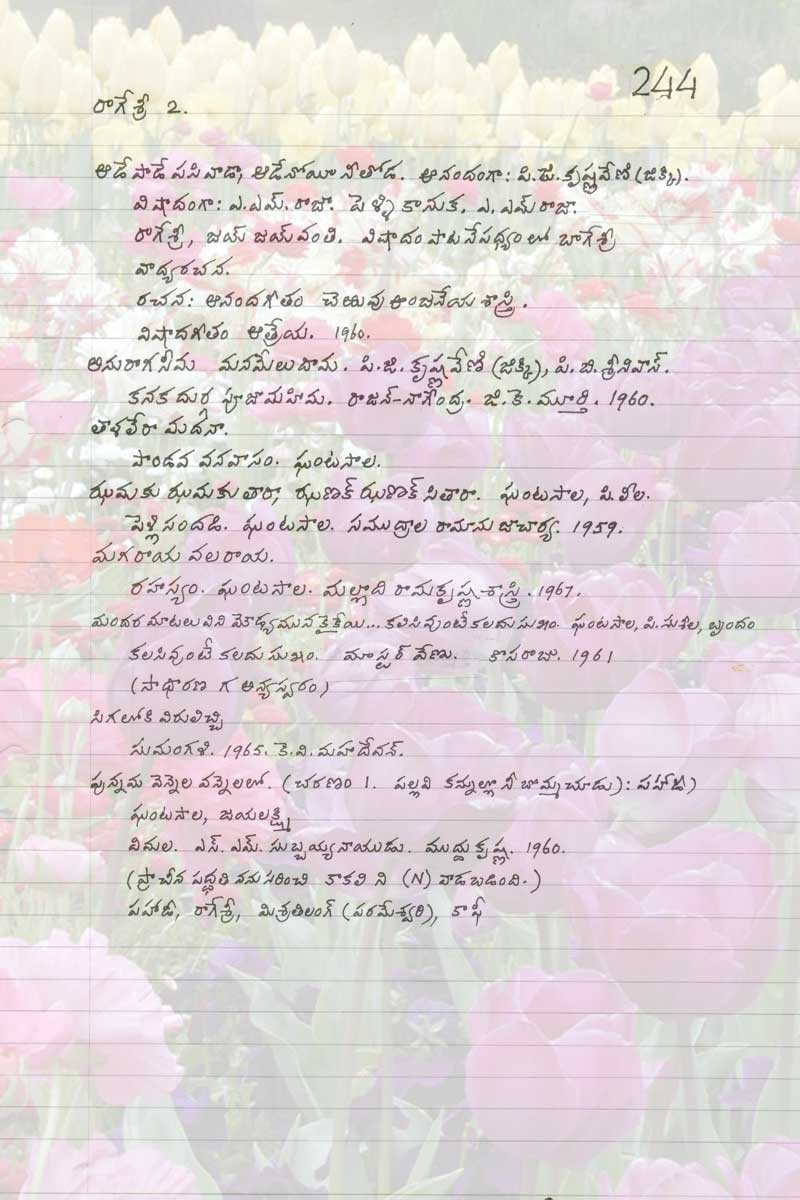 244
రాగేశ్రీ 2.
ఆడే పాడే పసివాడా, ఆడేనోయీ నీతోడ. ఆనందంగా: పి.జి.కృష్ణవేణి (జిక్కి).
విషాదంగా: ఎ.ఎమ్.రాజా. పెళ్ళి కానుక. ఎ.ఎమ్ రాజా.
రాగేశ్రీ, జయ్ జయ్ వంతి. విషాదం పాట నేపధ్యం లో బాగేశ్రీ
వాద్యరచన.
రచన: ఆనందగీతం చెఱువు ఆంజనేయ శాస్త్రి.
విషాదగీతం ఆత్రేయ. 1960.
అనురాగసీమ మనమేలుదామ. పి.జి. కృష్ణవేణి (జిక్కి), పి.బి.శ్రీనివాస్.
కనక దుర్గ పూజామహిమ. రాజన్-నాగేంద్ర. జి.కె.మూర్తి. 1960.
తాళలేరా మదనా.
పాండవ వనవాసం. ఘంటసాల.
ఝమకు ఝమకు తారా, ఝణక్ ఝణక్ సితారా. ఘంటసాల, పి.లీల.
పెళ్లి సందడి. ఘంటసాల. సముద్రాల రామానుజాచార్య. 1959.
మగరాయ వలరాయ.
రహస్యం. ఘంటసాల. మల్లాది రామకృష్ణ శాస్త్రి. 1967.
మంథర మాటలు విని మౌఢ్యమున కైకేయి... కలిసివుంటే కలదు సుఖం. ఘంటసాల, పి.సుశీల, బృందం
కలసివుంటే కలదు సుఖం. మాస్టర్ వేణు. కొసరాజు. 1961
(సాధారణ గ అన్యస్వరం)
సిగలోకి విరులిచ్చి
సుమంగళి. 1965. కె.వి.మహాదేవన్.
పున్నమ వెన్నెల వన్నెలలో. (చరణం 1. పల్లవి కన్నుల్లో నీ బొమ్మ చూడు): పహాడీ)
ఘంటసాల, జయలక్ష్మి
విమల. ఎస్.ఎమ్.సుబ్బయ్యనాయుడు. ముద్దుకృష్ణ. 1960.
(ప్రాచీన పద్ధతి ననుసరించి కాకలి ని (N) వాడబడింది.)
పహాడీ, రాగేశ్రీ, మిశ్రతిలంగ్ (పరమేశ్వరి), కాఫీ